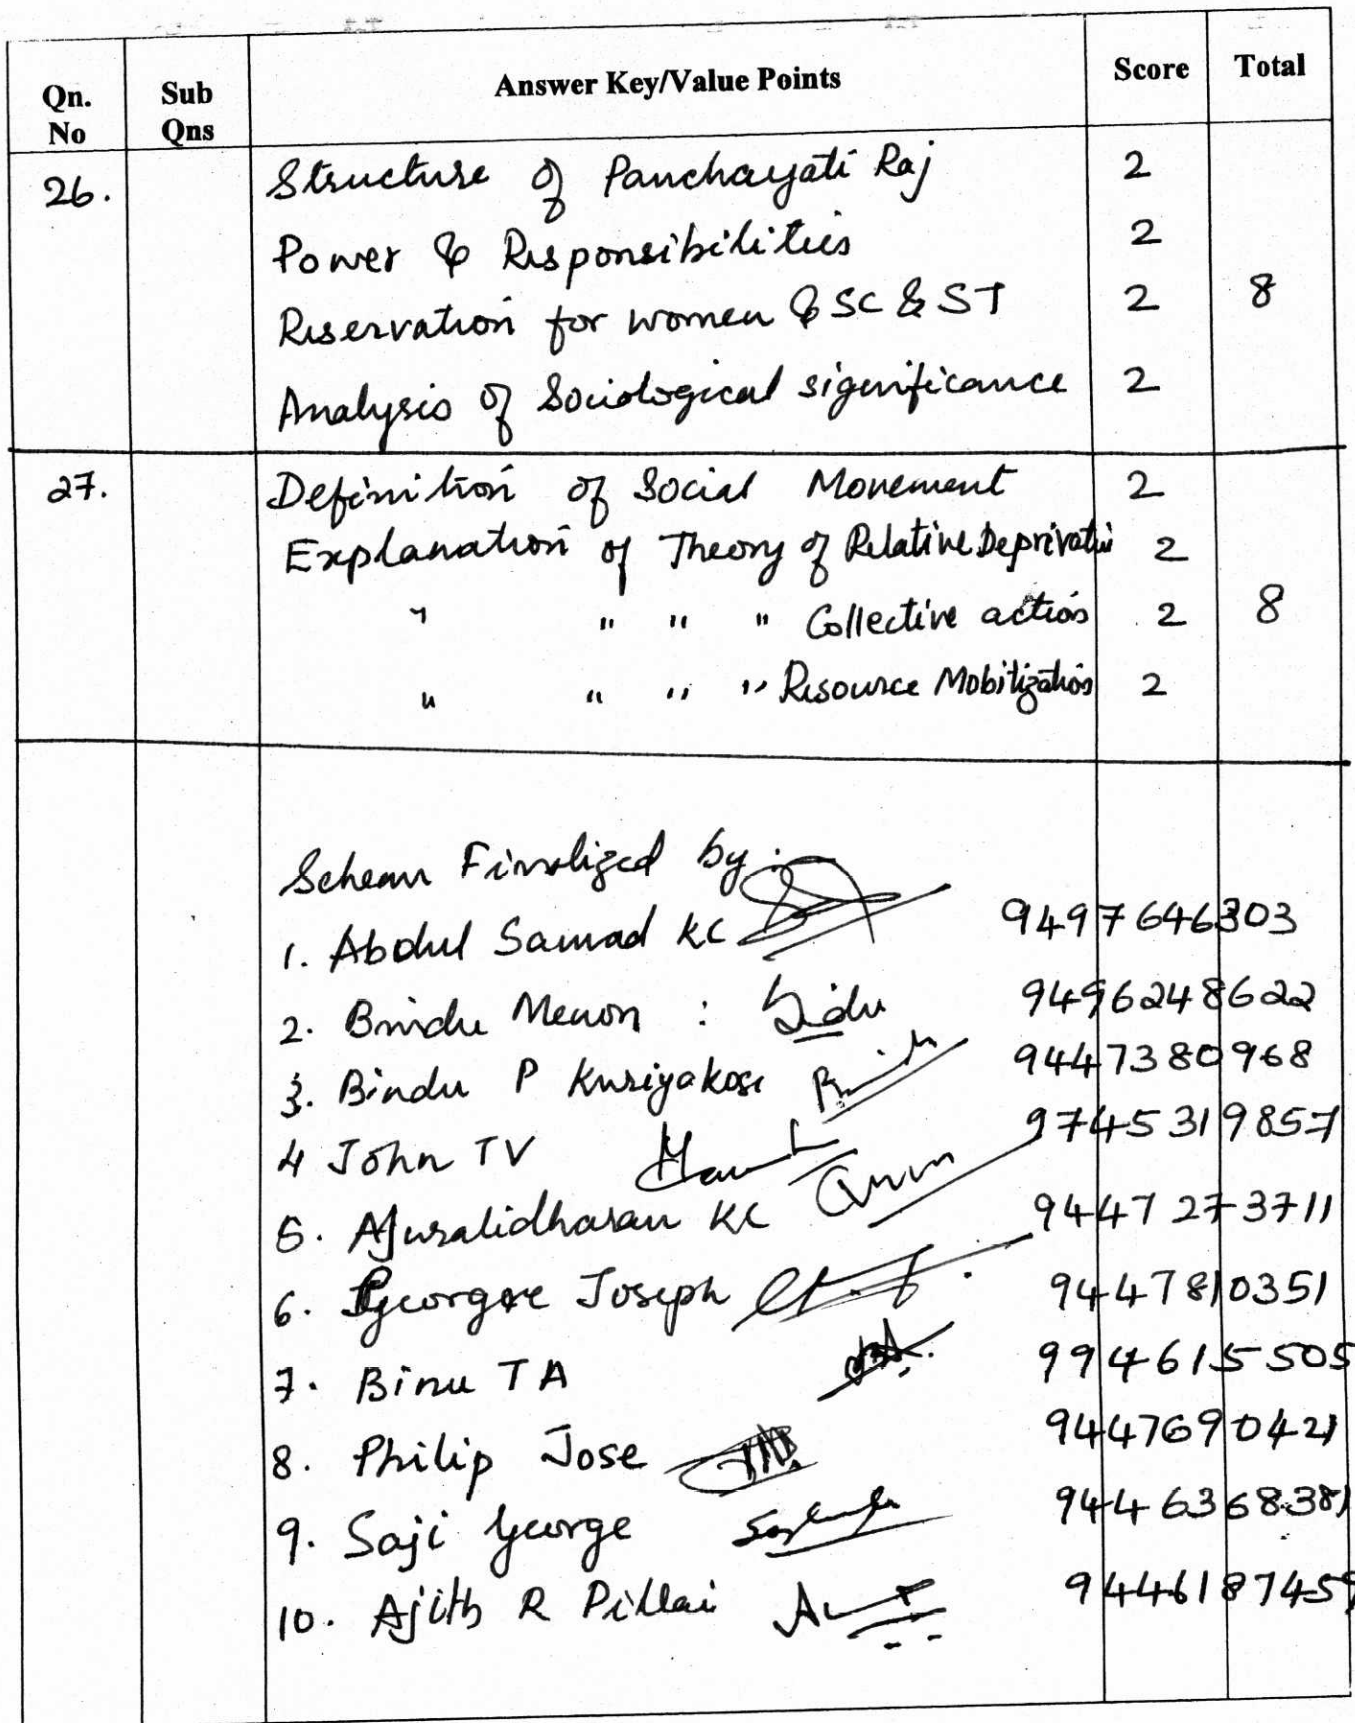 Qn. No Sub Qns Answer Key/Value Points Score Total
26. Structure of Panchayati Raj 2
Power & Responsibilities 2
Reservation for women & SC & ST 2 8
Analysis of Sociological significance 2
27. Definition of Social Movement 2
Explanation of Theory of Relative Deprivation 2
" " " " Collective action 2 8
" " " " Resource Mobilization 2
Scheme Finalized by :
1. Abdul Samad KC 9497646303
2. Bindu Menon : Bindu 9496248622
3. Bindu P Kuriyakose 9447380968
4 John TV 9745319857
5. Muralidharan KC 9447273711
6. George Joseph 9447810351
7. Binu TA 9946155505
8. Philip Jose 9447690421
9. Saji George 9446368381
10. Ajith R Pillai 9446187459